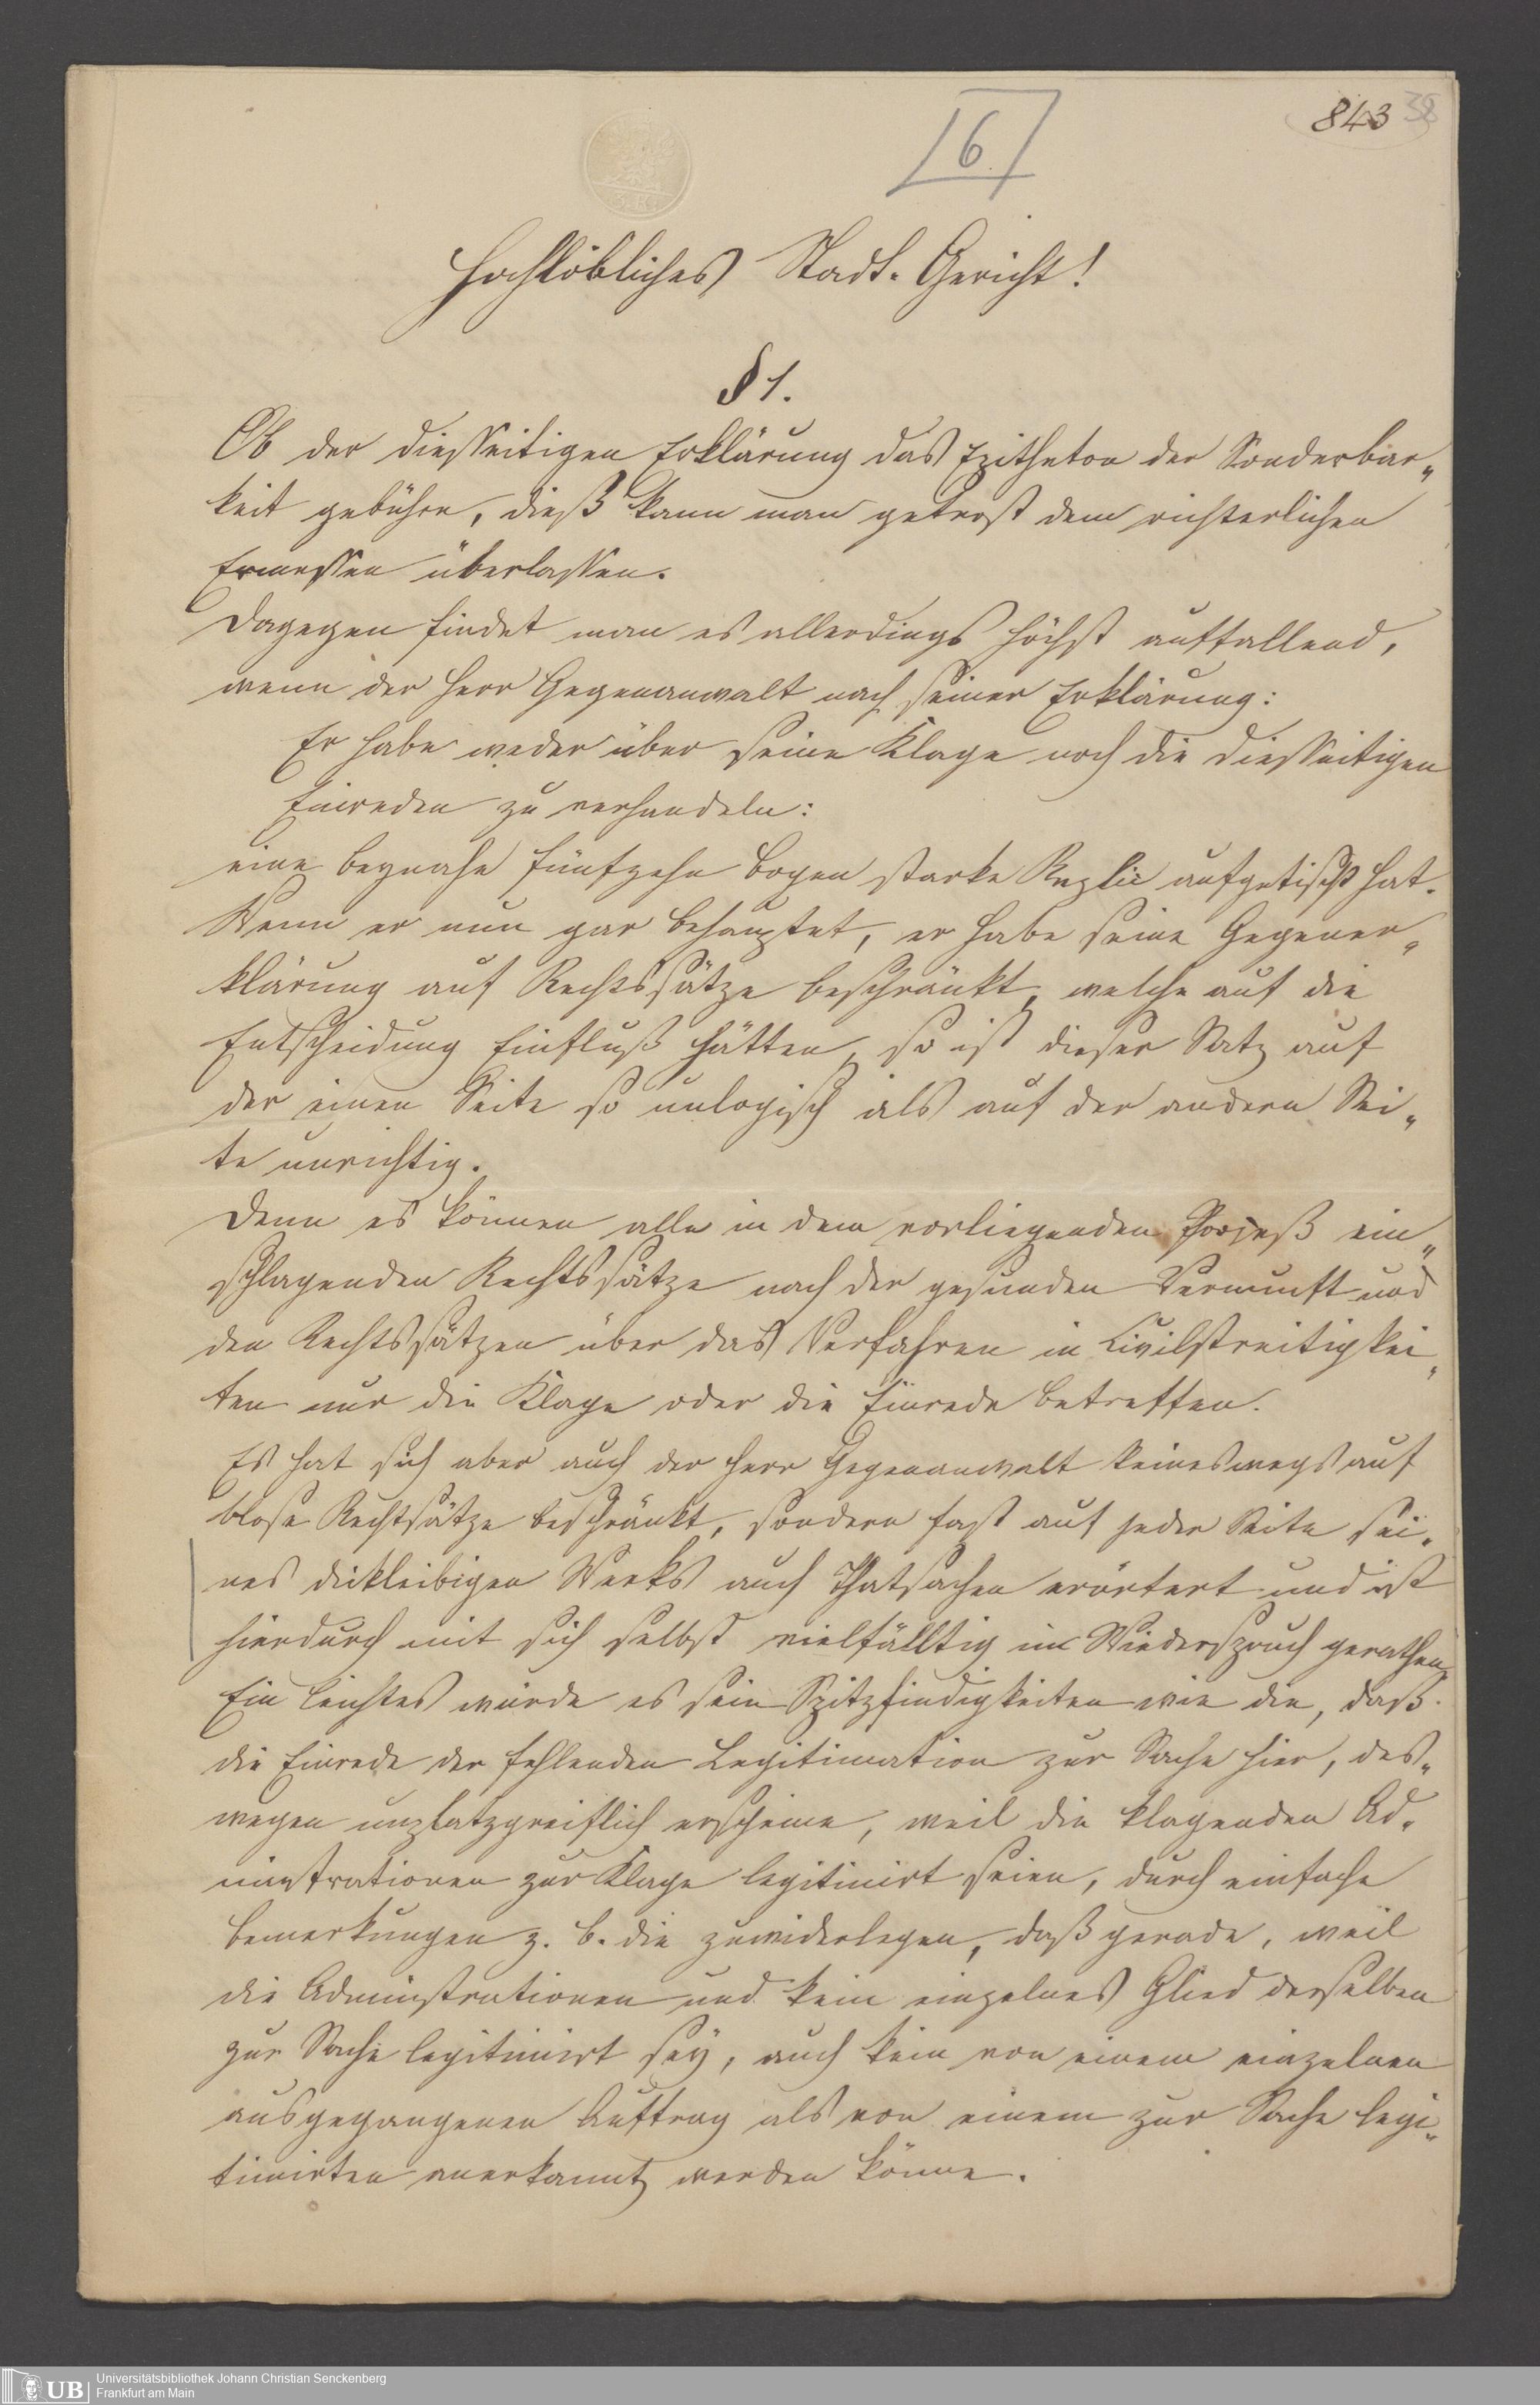 843 38
6
Hochlöbliches Stadt-Gericht!
§ 1.
Ob der diesseitigen Erklärung das Epitheton der Sonderbar„
keit gebühre, dieß kann man getrost dem richterlichen
Ermessen überlassen.
Dagegen findet man es allerdings höchst auffallend,
wenn der Herr Gegenanwalt nach seiner Erklärung:
Er habe weder über seine Klage noch die diesseitigen
Einreden zu verhandeln:
eine beynahe fünfzehn Bogen starke Replic aufgetischt hat.
Wenn er nun gar behauptet, er habe seine Gegener„
klärung auf Rechtssätze beschränkt, welche auf die
Entscheidung Einfluß hätten, so ist dieser Satz auf
der einen Seite so unlogisch als auf der andern Sei„
te unrichtig.
Denn es können alle in dem vorliegenden Prozeß ein„
schlagenden Rechtssätze nach der gesunden Vernunft und
den Rechtssätzen über das Verfahren in Civilstreitigkei„
ten nur die Klage oder die Einrede betreffen.
Es hat sich aber auch der Herr Gegenanwalt keineswegs auf
blose Rechtsätze beschränkt, sondern fast auf jeder Seite sei„
nes dickleibigen Werks auch Thatsachen erörtert und ist
hierdurch mit sich selbst vielfälltig im Wiederspruch gerathen
Ein leichtes würde es sein Spitzfindigkeiten wie die, daß
die Einrede der fehlenden Legitimation zur Sache hier, des„
wegen unplatzgreiflich erscheine, weil die klagenden Ad„
ministrationen zur Klage legitimirt seien, durch einfache
Bemerkungen z. B. die zuwiderlegen, daß gerade, weil
die Administrationen und kein einzelnes Glied derselben
zur Sache legitimirt sey, auch kein von einem einzelnen
ausgegangenen Auftrag als von einem zur Sache legi„
timirten anerkannt werden könne.
UB
Universitätsbibliothek Johann Christian Senckenberg
Frankfurt am Main